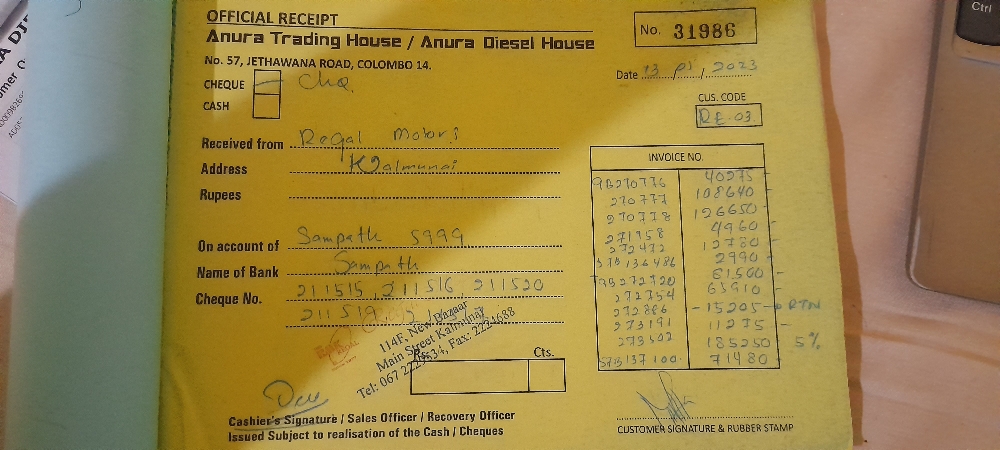 OFFICIAL RECEIPT
Anura Trading House / Anura Diesel House
No. 57, JETHAWANA ROAD, COLOMBO 14.
No. 31986
Date 13/01/2023
CHEQUE Chq.
CASH
CUS. CODE
RE-03
Received from Regal Motors
Address Kalmunai
Rupees
On account of Sampath 5999
Name of Bank Sampath
Cheque No. 211515, 211516, 211520
211519,
114F, New Bazaar
Main Street Kalmunai
Tel: 067 2229634, Fax: 2224688
Rs. Cts.
Cashier's Signature / Sales Officer / Recovery Officer
Issued Subject to realisation of the Cash / Cheques
INVOICE NO.
270776 40275
270777 108640
270778 126650
271758 4960
272472 12780
136486 2990
272720 81500
272754 65910
272886 -15205 RTN
273191 11275
273502 185250 5%
137100 71480
CUSTOMER SIGNATURE & RUBBER STAMP
Ctrl